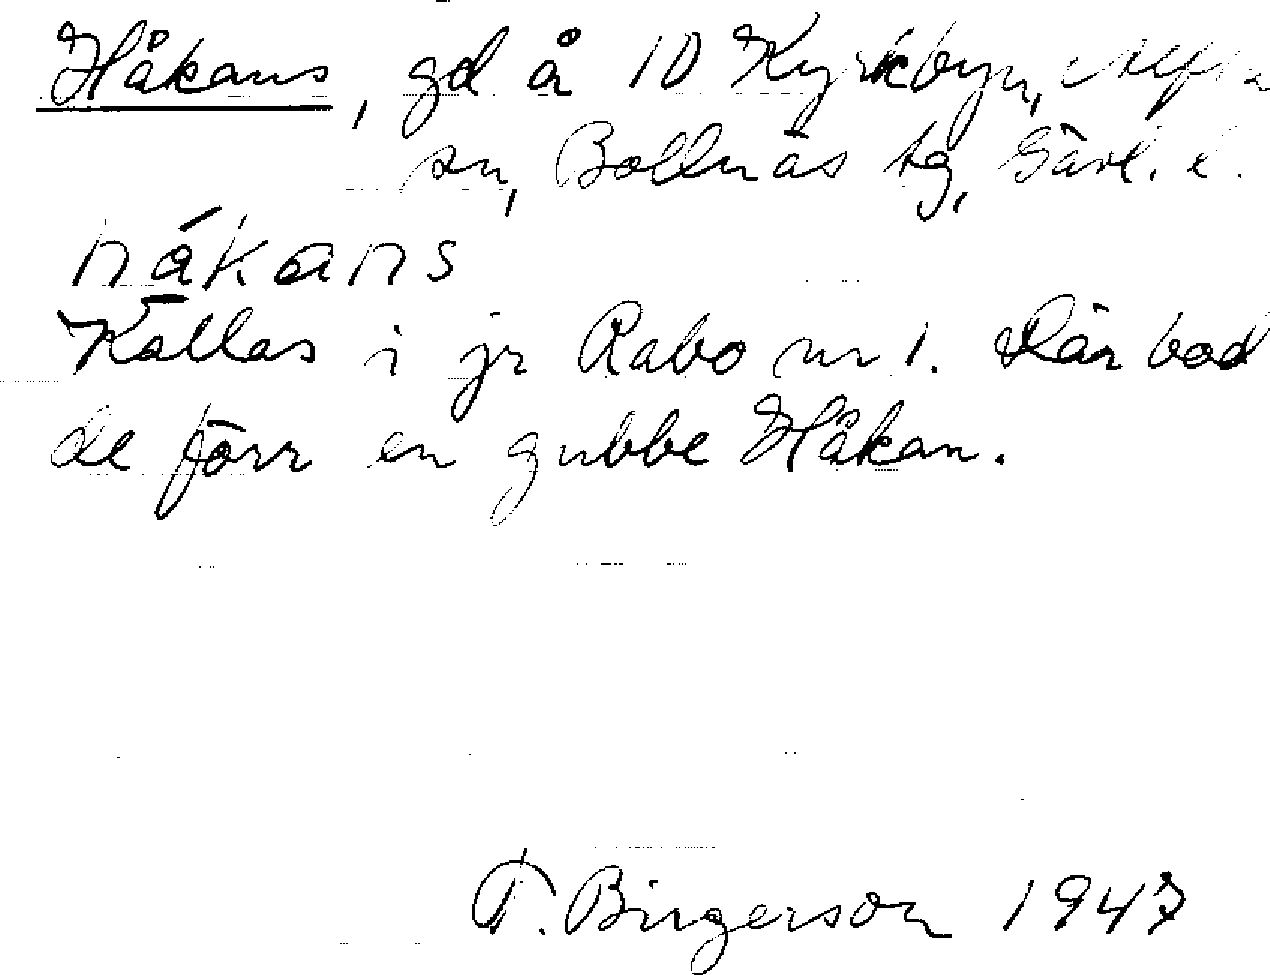 Håkans, gd å 10 Kyrkbyn, Alfta
sn, Bollnäs tg, Gävl. l.
håkans
Kallas i jr Rabo nr 1. Där bod
de förr en gubbe Håkan.
F. Birgerson 1947